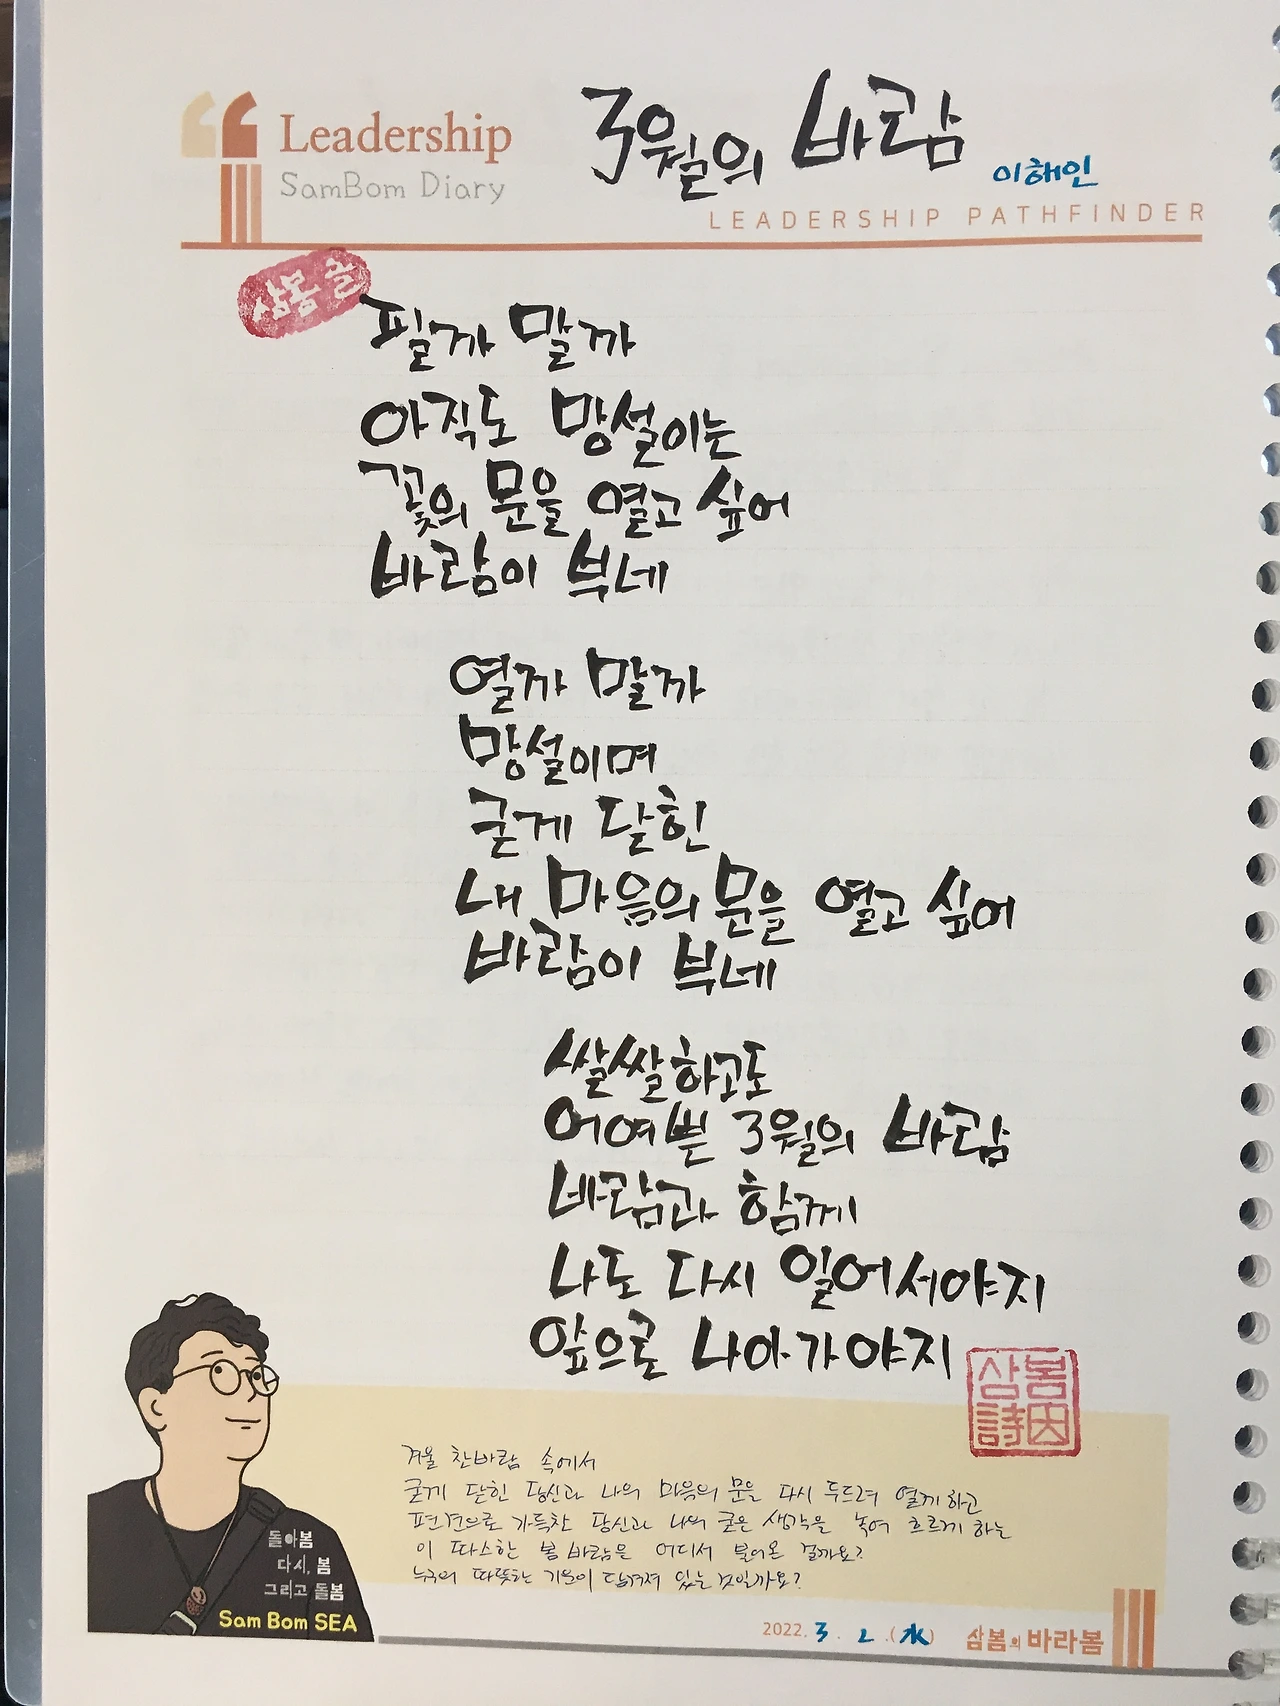 Leadership
SamBom Diary
3월의 바람
이해인
LEADERSHIP PATHFINDER
삼봄 글
필까 말까
아직도 망설이는
꽃의 문을 열고 싶어
바람이 부네
열까 말까
망설이며
굳게 닫힌
내 마음의 문을 열고 싶어
바람이 부네
쌀쌀하고도
어여쁜 3월의 바람
바람과 함께
나도 다시 일어서야지
앞으로 나아가야지
삼봄
詩
겨울 찬바람 속에서
굳게 닫힌 당신과 나의 마음의 문을 다시 두드려 열게 하고
편견으로 가득찬 당신과 나의 굳은 생각을 녹여 흐르게 하는
이 따스한 봄 바람은 어디서 불어온 걸까요?
누구의 따뜻한 기운이 담겨져 있는 것일까요?
돌아봄
다시, 봄
그리고 돌봄
Sam Bom SEA
2022. 3. 2.(水)
삼봄의 바라봄